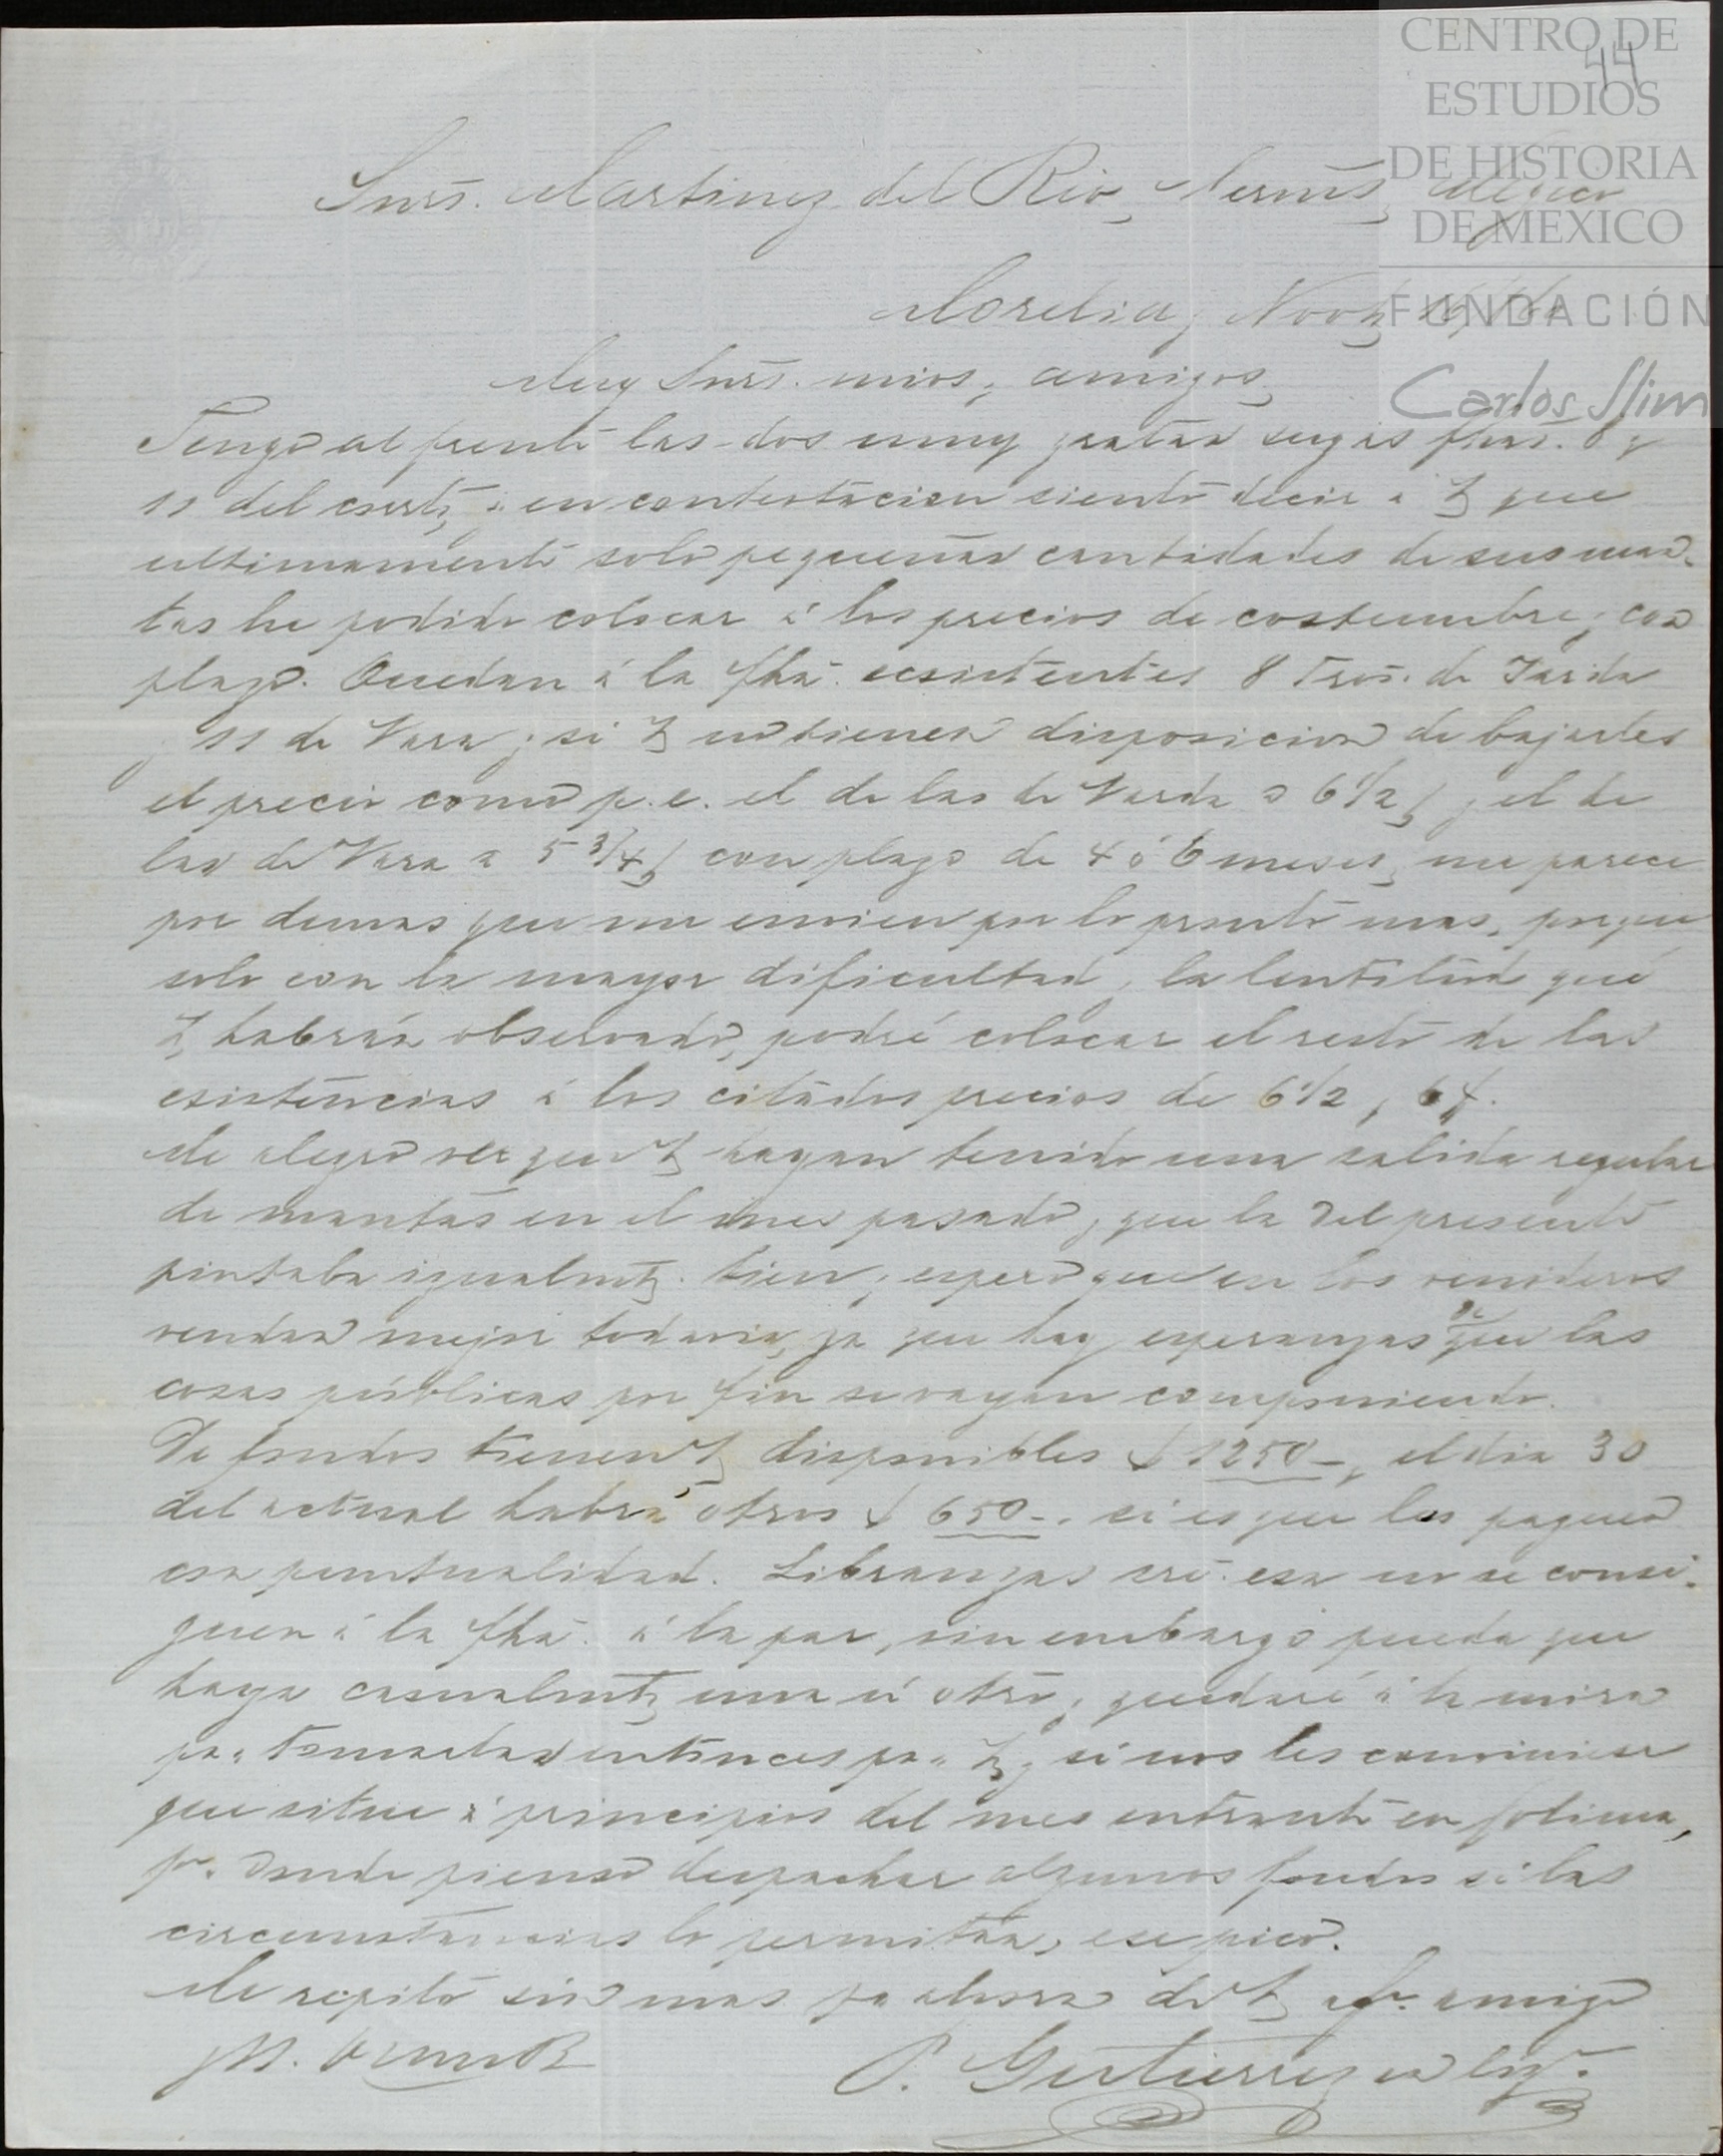 CENTRO DE
ESTUDIOS
DE HISTORIA
DE MEXICO
FUNDACIÓN
Carlos Slim
44
Snrs. Martinez del Rio, Herms, Mejico
Morelia, Novbe
Muy Snrs. mios y amigos,
Tengo al frente las dos muy gratas suyas fhas. 8 y
11 del corrte, i en contestacion siento decir á V que
ultimamente solo pequeñas cantidades de sus man-
tas he podido colocar á los precios de costumbre, con
plazo. Quedan á la fha. ecsistentes 8 Tros. de Varda
y 11 de Vara y si V no tienen disposicion de bajarles
el precio como p.e. el de las de Varda a 6 1/2 y el de
las de Vara a 5 3/4 con plazo de 4 ó 6 meses, me parece
por demas que me envien por lo pronto mas, porque
solo con la mayor dificultad, la lentitud que
V habrán observado, podré colocar el resto de las
esistencias á los citados precios de 6 1/2 y 6
Me alegro ver que V hayan tenido una salida regular
de mantas en el mes pasado, que la del presente
pintaba igualmte. bien, y espero que en los venideros
vendan mejor todavia, ya que hay esperanzas de que las
cosas públicas por fin se vayan componiendo.
De fondos tienen V disponibles $ 1250 -, el dia 30
del actual habrá otros $ 650 -. si es que los paguen
con puntualidad. Libranzas sre. esa no se consi-
guen á la fha. á la par, sin embargo pueda que
haya casualmte una ú otra, y quedaré á la mira
pa. tomarlas entonces pa. V, si nos les conviniese
que situe á principios del mes entrante en Colima,
pa. donde pienso despachar algunos fondos si las
circunstancias lo permitan, ese pico.
Me repito sin mas pa ahora de V afo. amigo
P. Gutierrez